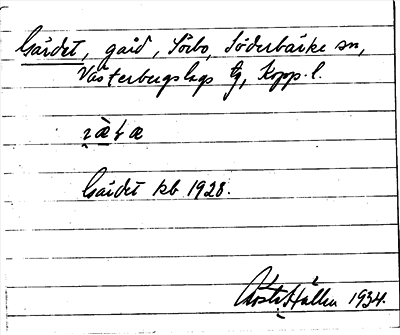 Gärdet, gård, Sörbo, Söderbärke sn,
Västerbergslags tg, Kopp. l.
Gärdet kb 1928.
Gösta Hallen 1934.